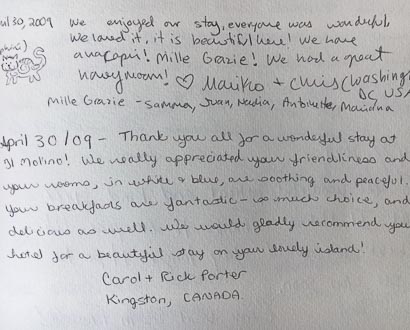 ul 30, 2009 We enjoyed our stay, everyone was wonderful,
we loved it, it is beautiful here! We have
anacapri! Mille Grazie! We had a great
honeymoon! ♡ Maiko + Chris (Washington
DC, USA
Mille Grazie - Samma, Juan, Nadia, Antoinette, Mariana
April 30/09 - Thank you all for a wonderful stay at
Il Molino! We really appreciated your friendliness and
your rooms, in white & blue, are soothing and peaceful.
Your breakfasts are fantastic - so much choice, and
delicious as well. We would gladly recommend your
hotel for a beautiful stay on your lovely island!
Carol + Rick Porter
Kingston, CANADA.